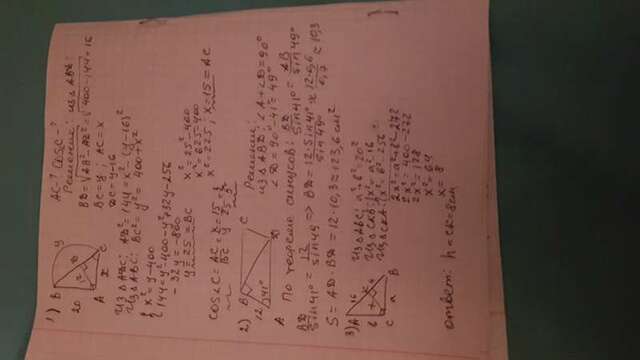 1) AC-? COSC-?
Решение: из △ABD:
BD=√AB²-AD²=√400-144=16
BC=y; AC=x
DC=y-16
B y
20 12
A x C
Из △ADC: AD²=144=x²-(y-16)²
Из △ABC: BC²=y²=400+x²
{ x²=y-400
{ 144=y²-400-y²+32y-256
-32y=-800
y=25=BC
x²=25²-400
x²=625-400
x²=225; x=15=AC
COS∠C=AC/BC=x/y=15/25=3/5
2) B C
12 41°
A D
Решение:
из △ABD: ∠A+∠D=90°
∠D=90°-41°=49°
По теореме синусов: BD/sin41°=AB/sin49°
BD/sin41°=12/sin49 => BD=12·sin41°/sin49°≈12·0,6/0,7≈10,3
S=AD·BD=12·10,3=123,6 см²
3) A 16
b x
C a B
Из △ABC: a²+b²=20²
Из △CKB: {x²=a²-16
Из △CKA: {x²=b²-256
2x²=a²+b²-272
2x²=400-272
2x²=128
x²=64
x=8
ответ: h=CK=8см